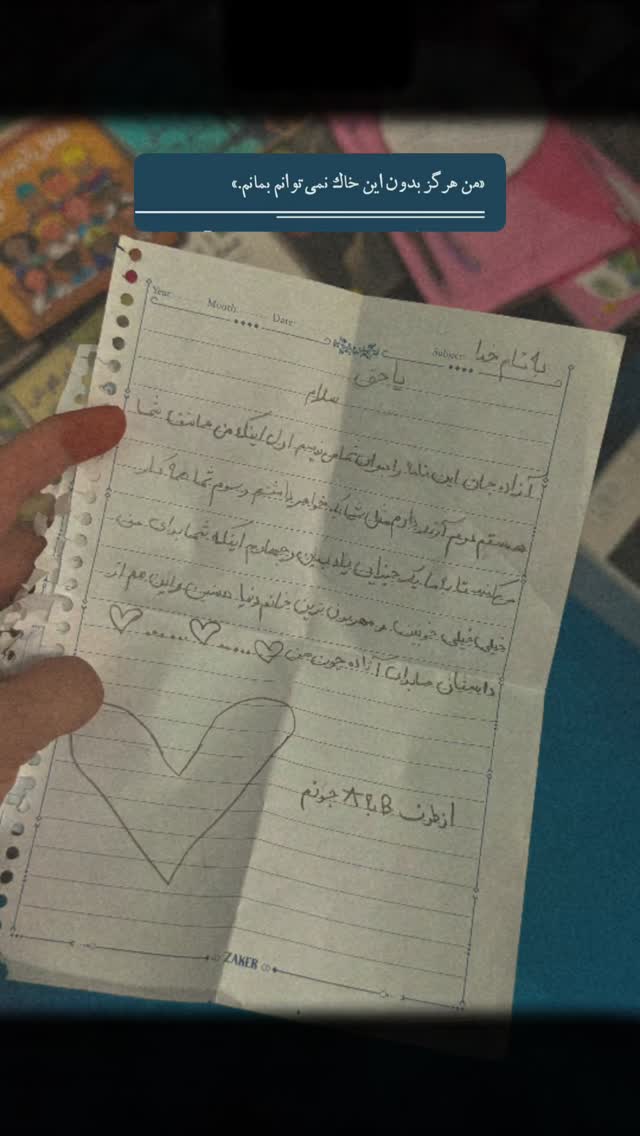 «من هرگز بدون این خاك نمی‌توانم بمانم.»
Year: Month: Date: Subject: به نام خدا
یا حق
سلام
آزاده جان این نامه را برای تو می نویسم اول اینکه من عاشق شما
هستم دوم آرزو دارم مثل شما یک خواهر داشتم و سوم شما همه کار
می‌کنید تا به ما یک چیزایی یاد بدین و چهارم اینکه شما برای من
خیلی خیلی خوبین و مهربون ترین خانم دنیا هستین و این هم از
داستان من برای آزاده جون من
از طرف B به A جونم
ZAKER